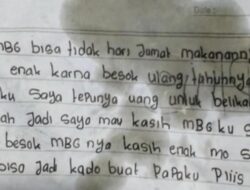 MBG bisa tidak hari Jamat makanann
enak karna besok ulang tahunnya
ku saya tepunya uang untuk belika
ah Jadi sayo mau kasih MBG ku s
besok MBG nya kasih enak mo s
biso Jad kado buat PaPaku Pliis